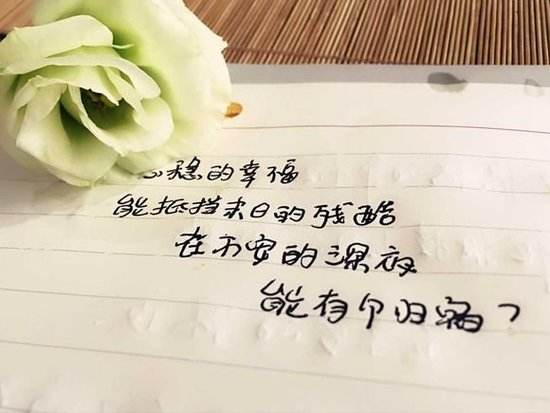 稳的幸福
能抵挡末日的残酷
在不安的深夜
能有个归宿